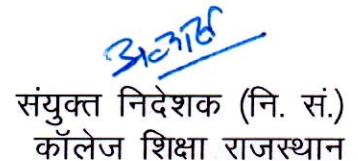 संयुक्त निदेशक (नि. सं.)
कॉलेज शिक्षा राजस्थान